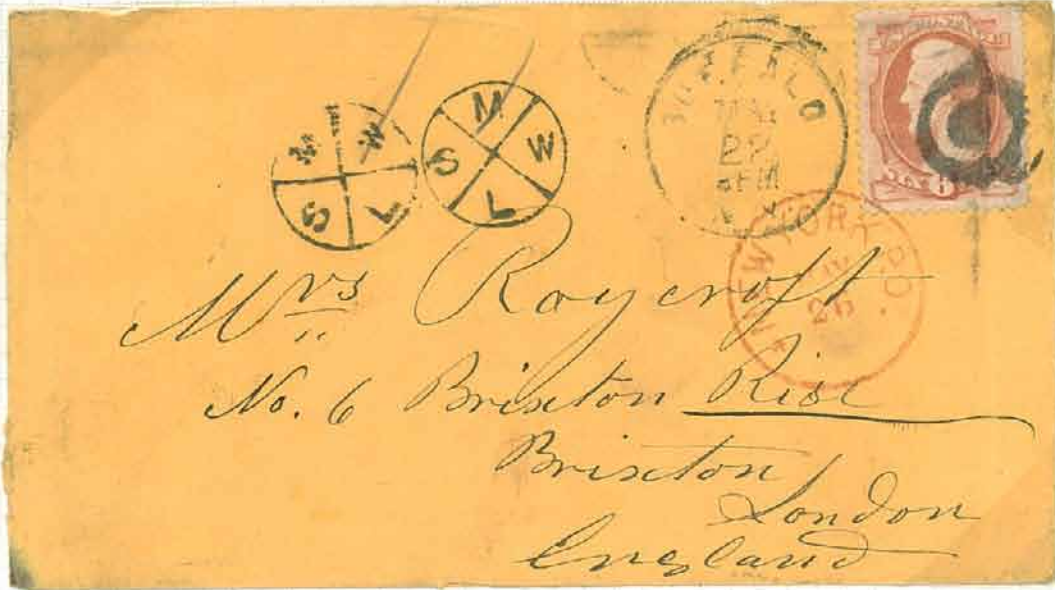 M W L S
M W L S
BUFFALO
22
N.Y.
NEW YORK P.O.
26
Mrs Roycroft
No. 6 Brixton Rise
Brixton
London
England